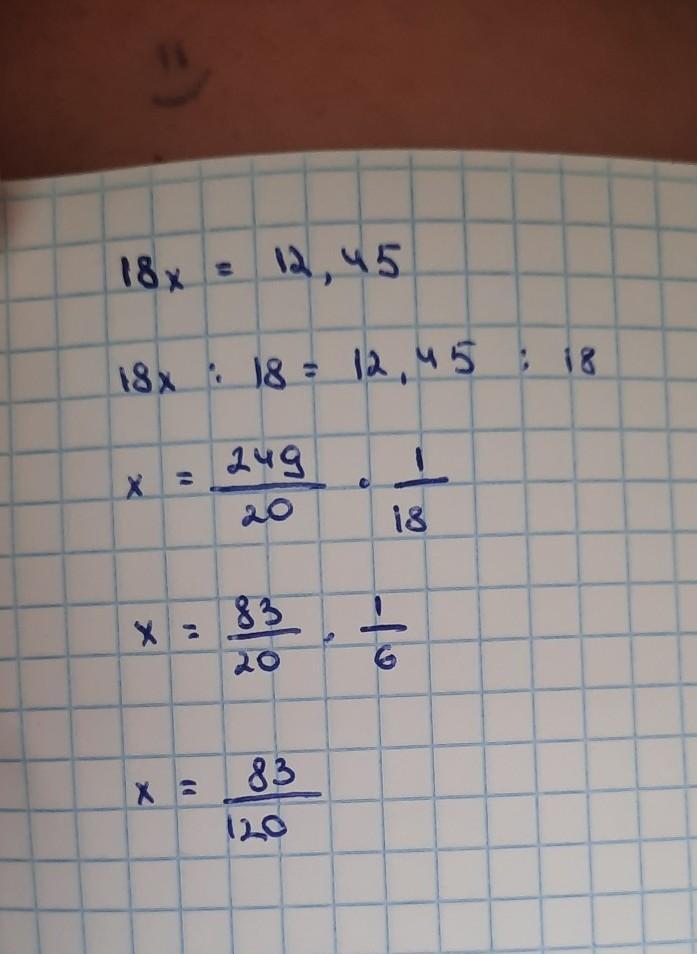 18x = 12,45
18x : 18 = 12,45 : 18
x = 249/20 · 1/18
x = 83/20 · 1/6
x = 83/120